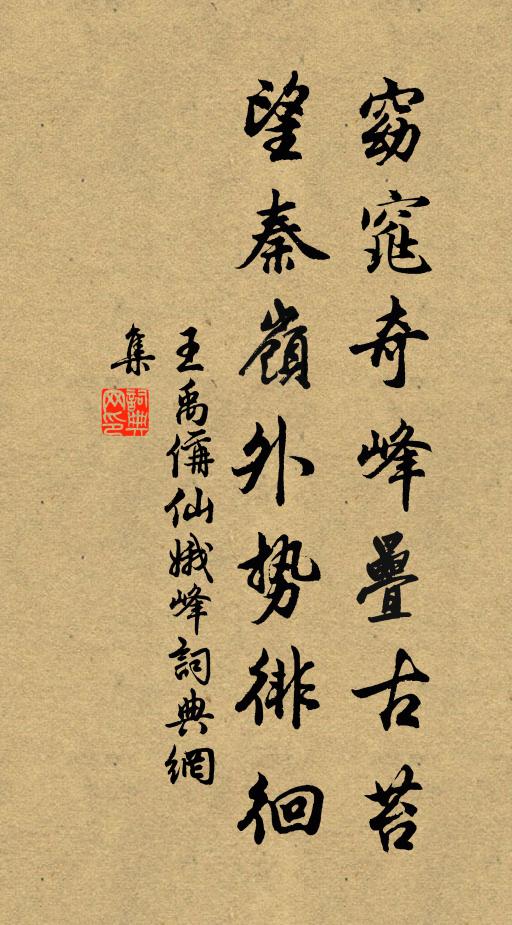 窈窕奇峰疊古苔
望秦嶺外势徘徊
王禹偁仙娥峰詞典網
集
詞典網印